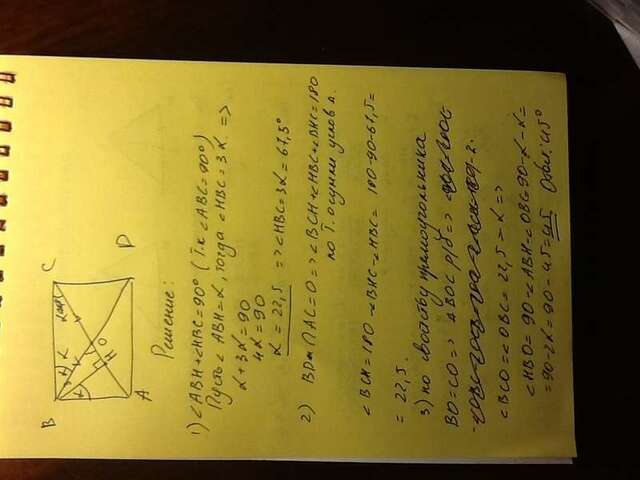 B C
A D
O
H
Решение:
1) ∠ABH+∠HBC=90° (т.к ∠ABC=90°)
Пусть ∠ABH=α, тогда ∠HBC=3α =>
α+3α=90
4α=90
α=22,5 => ∠HBC=3α=67,5°
2) BD∩AC=O => ∠BCH+∠HBC+∠BHC=180
по т. о сумме углов Δ.
∠BCH=180-∠BHC-∠HBC=180-90-67,5=
=22,5.
3) по свойству прямоугольника
BO=CO => ΔBOC р/б =>
∠BCO=∠OBC=22,5=α =>
∠HBO=90-∠ABH-∠OBC=90-α-α=
=90-2α=90-45=45 Ответ: 45°